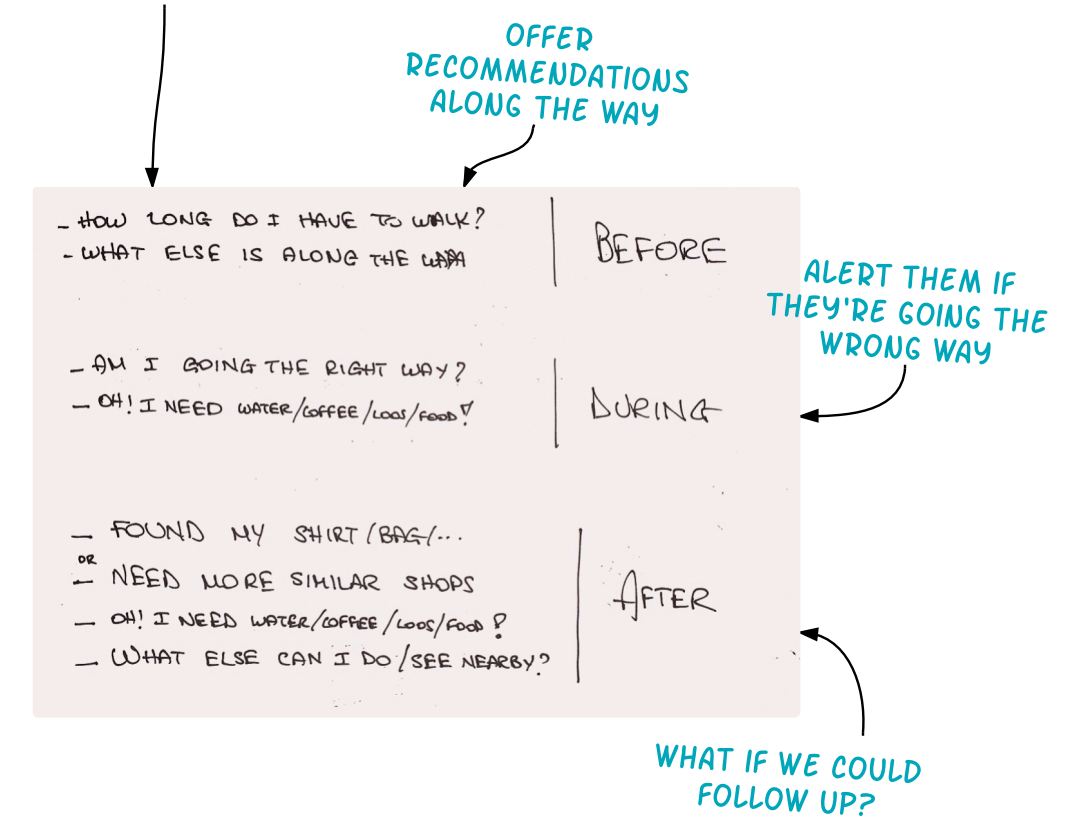 OFFER
RECOMMENDATIONS
ALONG THE WAY
- HOW LONG DO I HAVE TO WALK?
- WHAT ELSE IS ALONG THE
BEFORE
ALERT THEM IF
THEY'RE GOING THE
WRONG WAY
- AM I GOING THE RIGHT WAY?
- OH! I NEED WATER/COFFEE/LOOS/FOOD!
DURING
- FOUND MY SHIRT/BAG/...
OR
- NEED MORE SIMILAR SHOPS
- OH! I NEED WATER/COFFEE/LOOS/FOOD?
- WHAT ELSE CAN I DO/SEE NEARBY?
AFTER
WHAT IF WE COULD
FOLLOW UP?